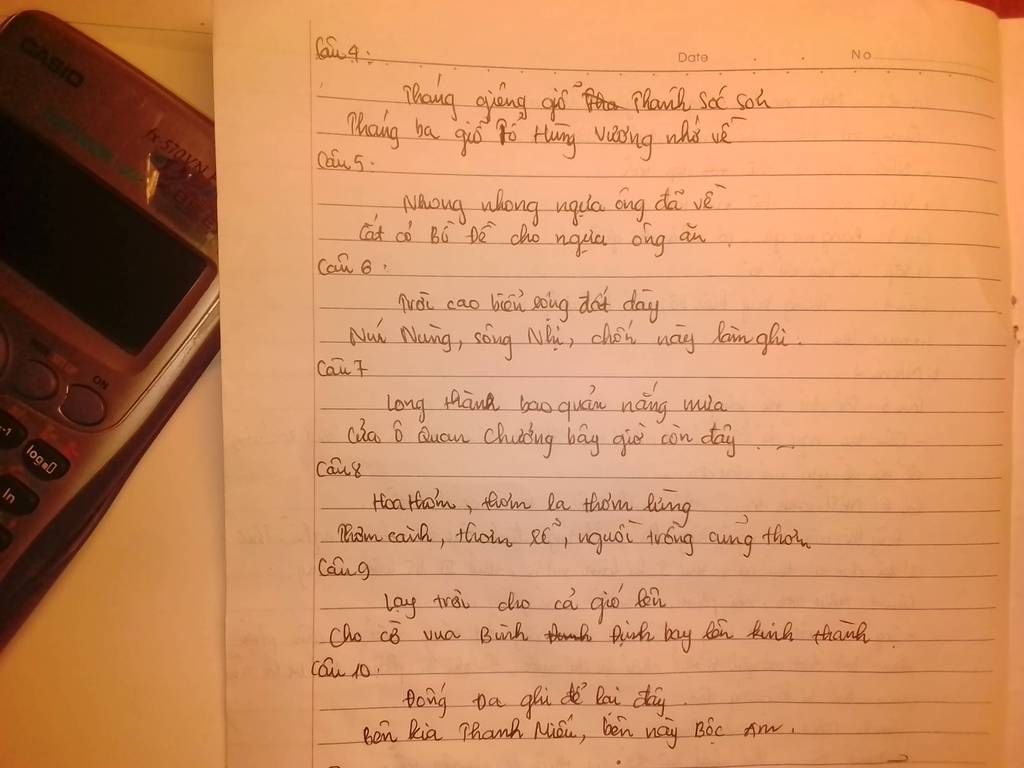 Câu 4:
Date . . No
Tháng giêng giỗ Thánh Sóc Sơn
Tháng ba giỗ Tổ Hùng Vương nhớ về
Câu 5:
Nhong nhong ngựa ông đã về
Cắt cỏ Bồ Đề cho ngựa ông ăn
Câu 6:
Trời cao biển rộng đất dày
Núi Nùng, sông Nhị, chốn này làm ghi.
Câu 7
Long thành bao quản nắng mưa
Cửa ô Quan Chưởng bây giờ còn đây
Câu 8
Hoa thơm, thơm lạ thơm lùng
Thơm cành, thơm rể, người trồng cũng thơm
Câu 9
Lạy trời cho cả gió lên
Cho cờ vua Bình Định bay lên kinh thành
Câu 10:
Đống Đa ghi để lại đây
Bên kia Thanh Miếu, bên này Bộc Am.
CASIO
fx-570VN
ON
log
ln